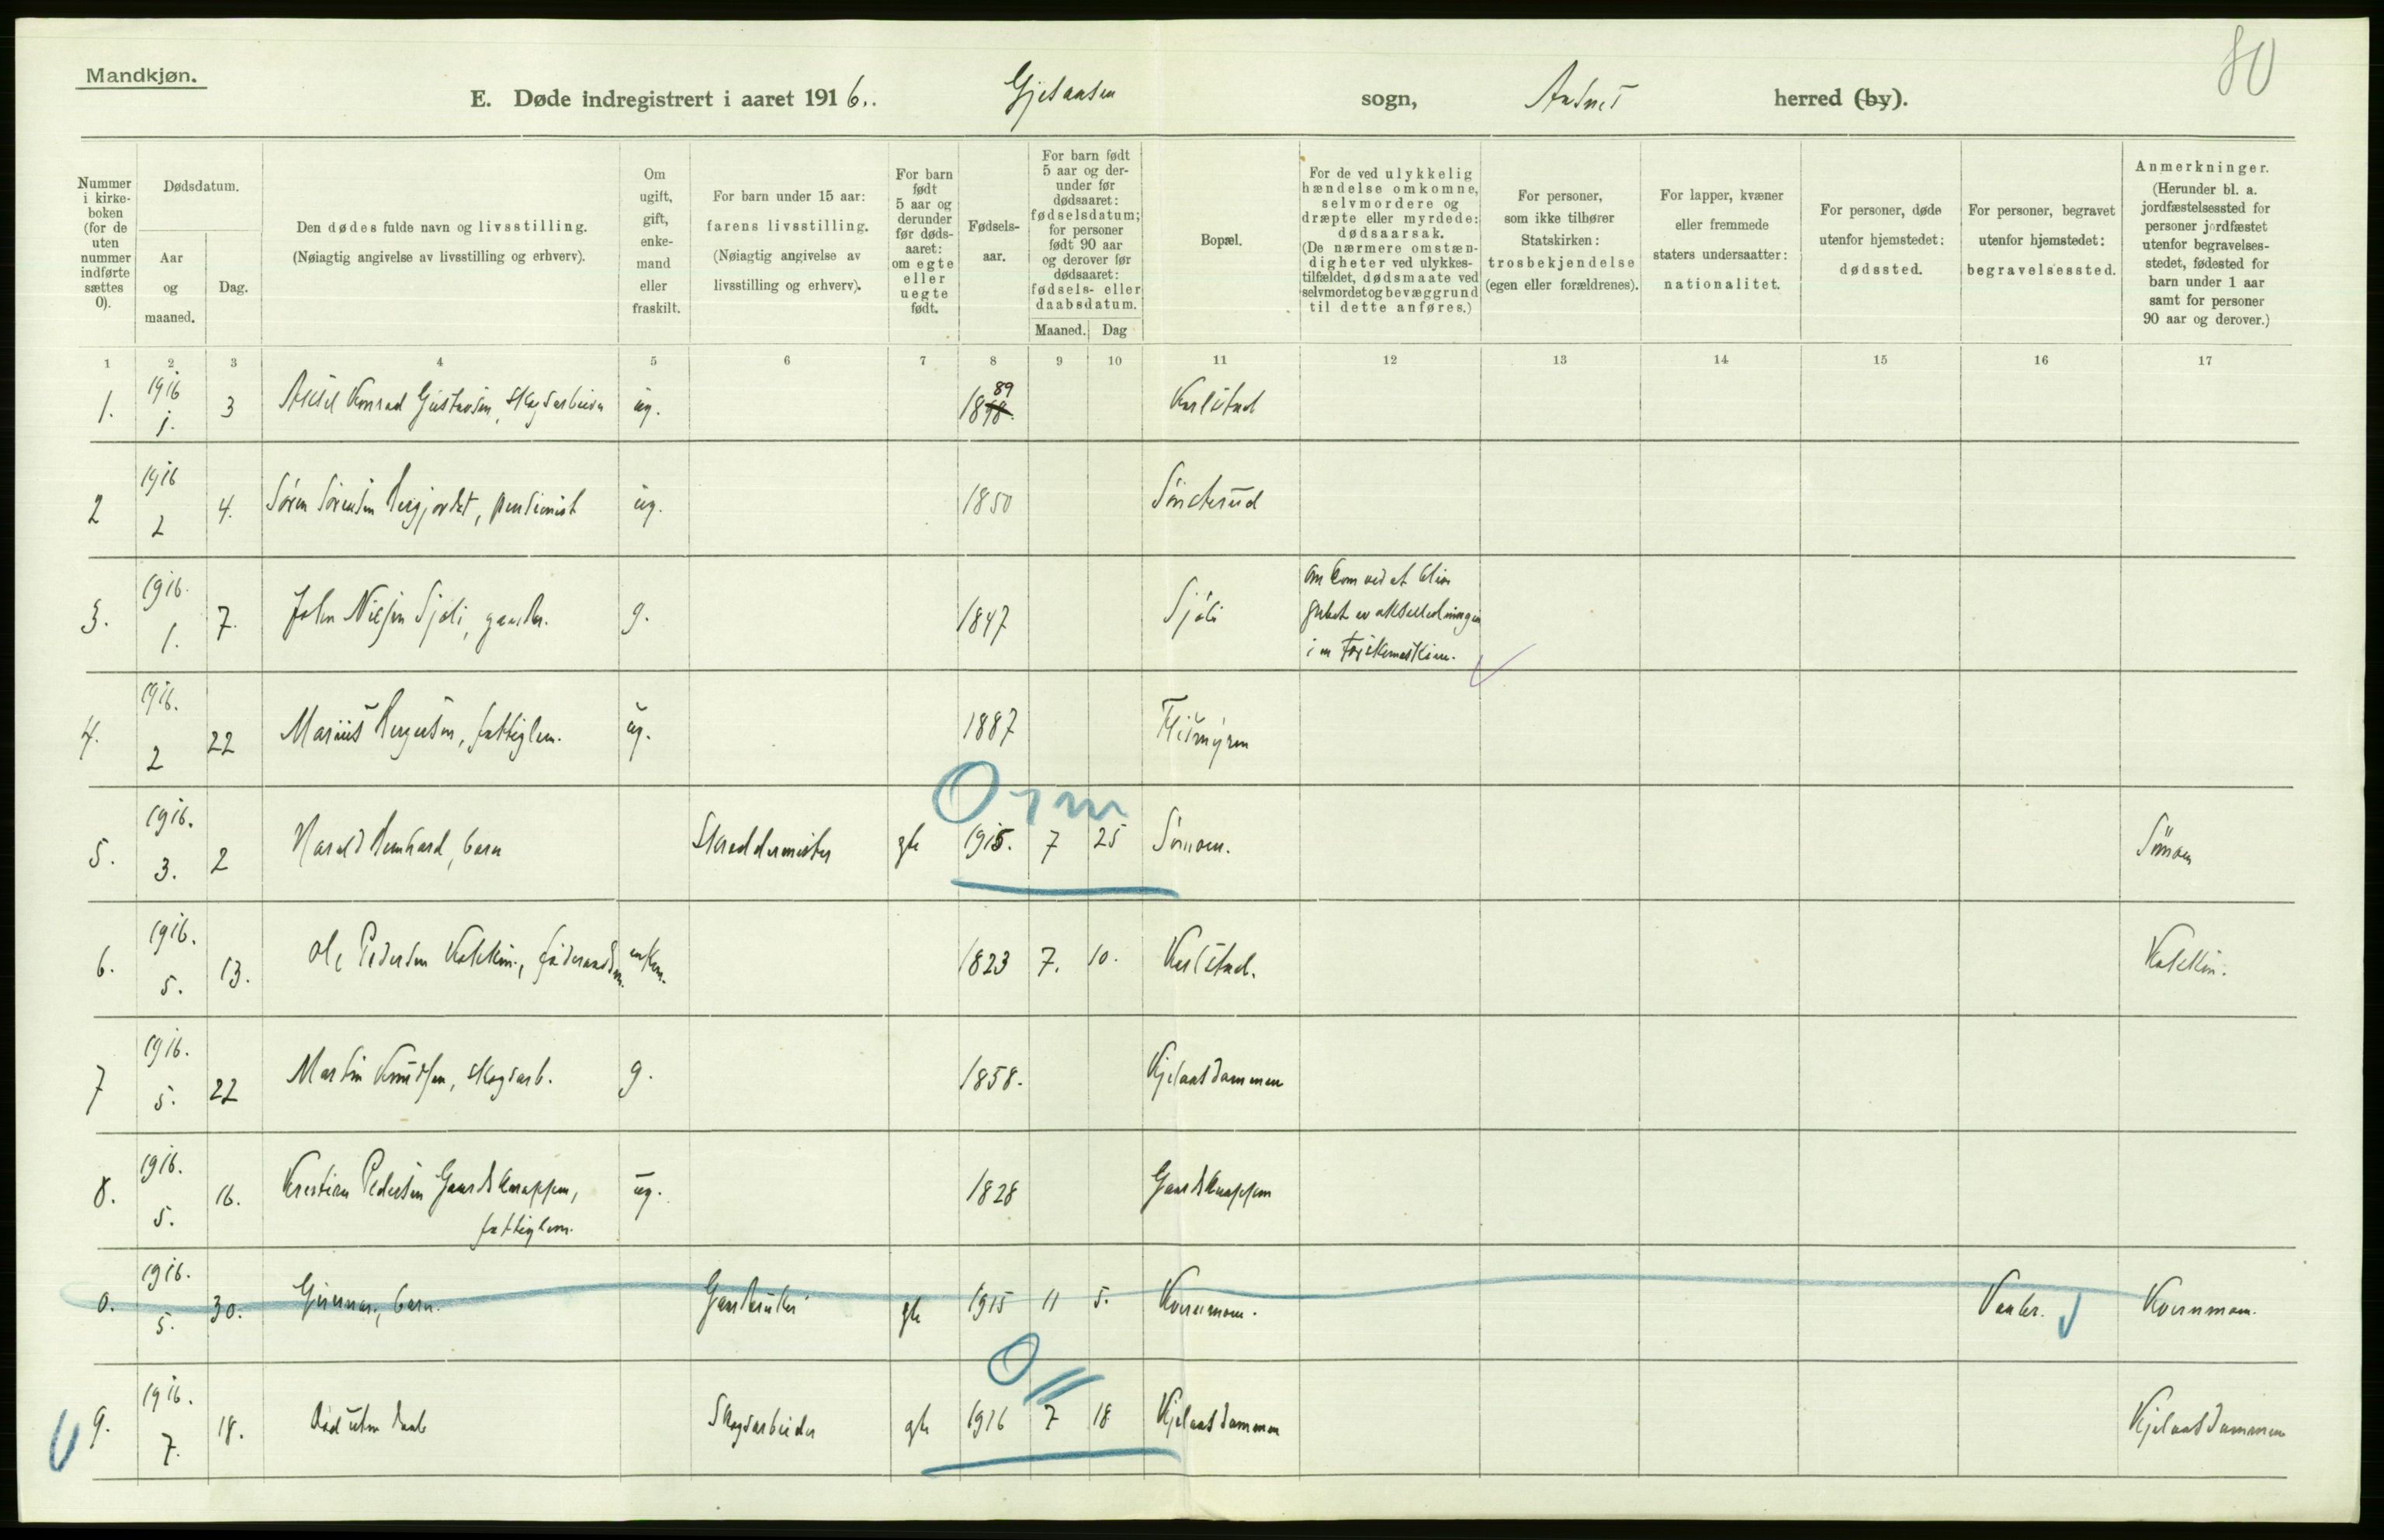 Mandkjøn.
80
E. Døde indregistrert i aaret 1916. Gjesaasen sogn, Aasnes herred (by).
Nummer i kirkeboken (for de uten nummer indførte sættes 0).
Dødsdatum.
Aar og maaned.
Dag.
Den dødes fulde navn og livsstilling.
(Nøiagtig angivelse av livsstilling og erhverv).
Om ugift, gift, enkemand eller fraskilt.
For barn under 15 aar:
farens livsstilling.
(Nøiagtig angivelse av livsstilling og erhverv).
For barn født 5 aar og derunder før dødsaaret: om egte eller uegte født.
Fødselsaar.
For barn født 5 aar og derunder før dødsaaret: fødselsdatum; for personer født 90 aar og derover før dødsaaret: fødsels- eller daabsdatum.
Maaned. Dag
Bopæl.
For de ved ulykkelig hændelse omkomne, selvmordere og dræpte eller myrdede: dødsaarsak.
(De nærmere omstændigheter ved ulykkestilfældet, dødsmaate ved selvmordet og bevæggrund til dette anføres.)
For personer, som ikke tilhører Statskirken: trosbekjendelse (egen eller forældrenes).
For lapper, kvæner eller fremmede staters undersaatter: nationalitet.
For personer, døde utenfor hjemstedet: dødssted.
For personer, begravet utenfor hjemstedet: begravelsessted.
Anmerkninger.
(Herunder bl. a. jordfæstelsessted for personer jordfæstet utenfor begravelsesstedet, fødested for barn under 1 aar samt for personer 90 aar og derover.)
1 2 3 4 5 6 7 8 9 10 11 12 13 14 15 16 17
1. 1916 1. 3 Aksel Konrad Gustavsen, skogsarbeider ug. 1898. 89 Karlstad
2 1916 2 4. Søren Sørensen Bergjordet, pensionist ug. 1850 Sønsterud
3. 1916. 1. 7. John Nilsen Sjøli, gaardbr. g. 1847 Sjøli omkom ved at bli
grebet av akselledningen
i en Tærskemaskine.
4. 1916. 2 22 Marius Bergersen, fattiglem. ug. 1887 Flismyren
5. 1916. 3. 2 Harald Bernhard, barn Skreddermester gte 1915. 7 25 Sömoen. Sömoen
6. 1916. 5. 13. Ole Pedersen Kolkin, føderaadsm. enkem. 1823 7. 10. Karlstad. Kolkin.
7 1916. 5. 22 Martin Knudsen, skogsarb. g. 1858. Kjelaasdammen
8. 1916. 5. 16. Kristian Pedersen Gaardsknappen, ug. 1828 Gaardsknappen
fattiglem.
0. 1916. 5. 30. Gunnar, barn. Gaardbruker gte 1915 11 5. Kvernmoen. Vaaler. Kvernmoen.
9. 1916. 7. 18. Død uten daab Skogsarbeider gte 1916 7 18 Kjelaasdammen Kjelaasdammen